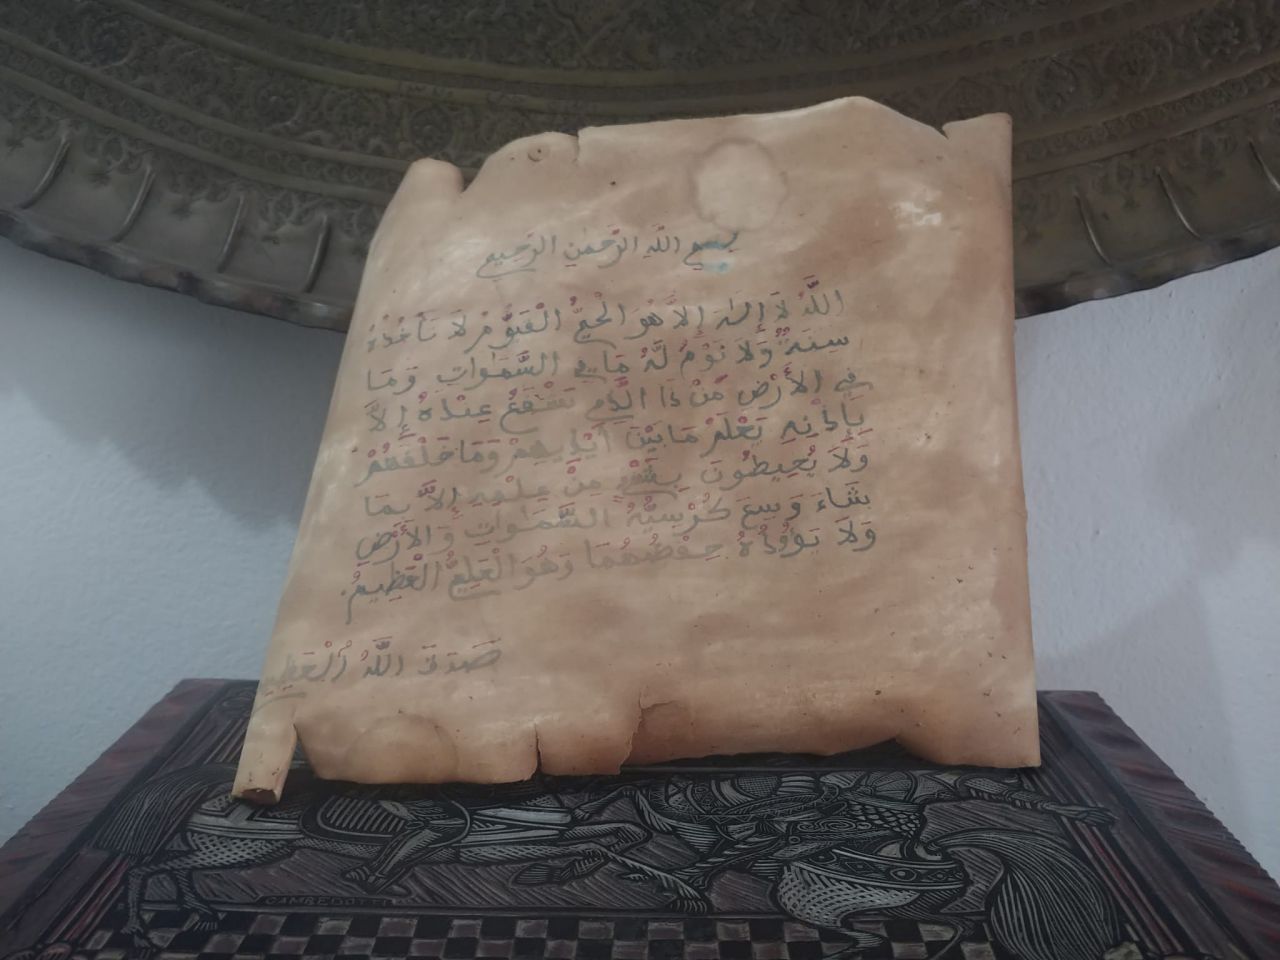 بسم اللَّهِ الرَّحْمٰنِ الرَّحِيمِ
اللَّهُ لَا إِلٰهَ إِلَّا هُوَ الْحَيُّ الْقَيُّومُ لَا تَأْخُذُهُ
سِنَةٌ وَلَا نَوْمٌ لَّهُ مَا فِي السَّمٰوَاتِ وَمَا
فِي الْأَرْضِ مَنْ ذَا الَّذِي يَشْفَعُ عِنْدَهُ إِلَّا
بِإِذْنِهِ يَعْلَمُ مَا بَيْنَ أَيْدِيهِمْ وَمَا خَلْفَهُمْ
وَلَا يُحِيطُونَ بِشَيْءٍ مِنْ عِلْمِهِ إِلَّا بِمَا
شَاءَ وَسِعَ كُرْسِيُّهُ السَّمٰوَاتِ وَالْأَرْضَ
وَلَا يَؤُدُهُ حِفْظُهُمَا وَهُوَ الْعَلِيُّ الْعَظِيمُ.
صَدَقَ اللَّهُ الْعَظِيم
GAMBEDOTTI